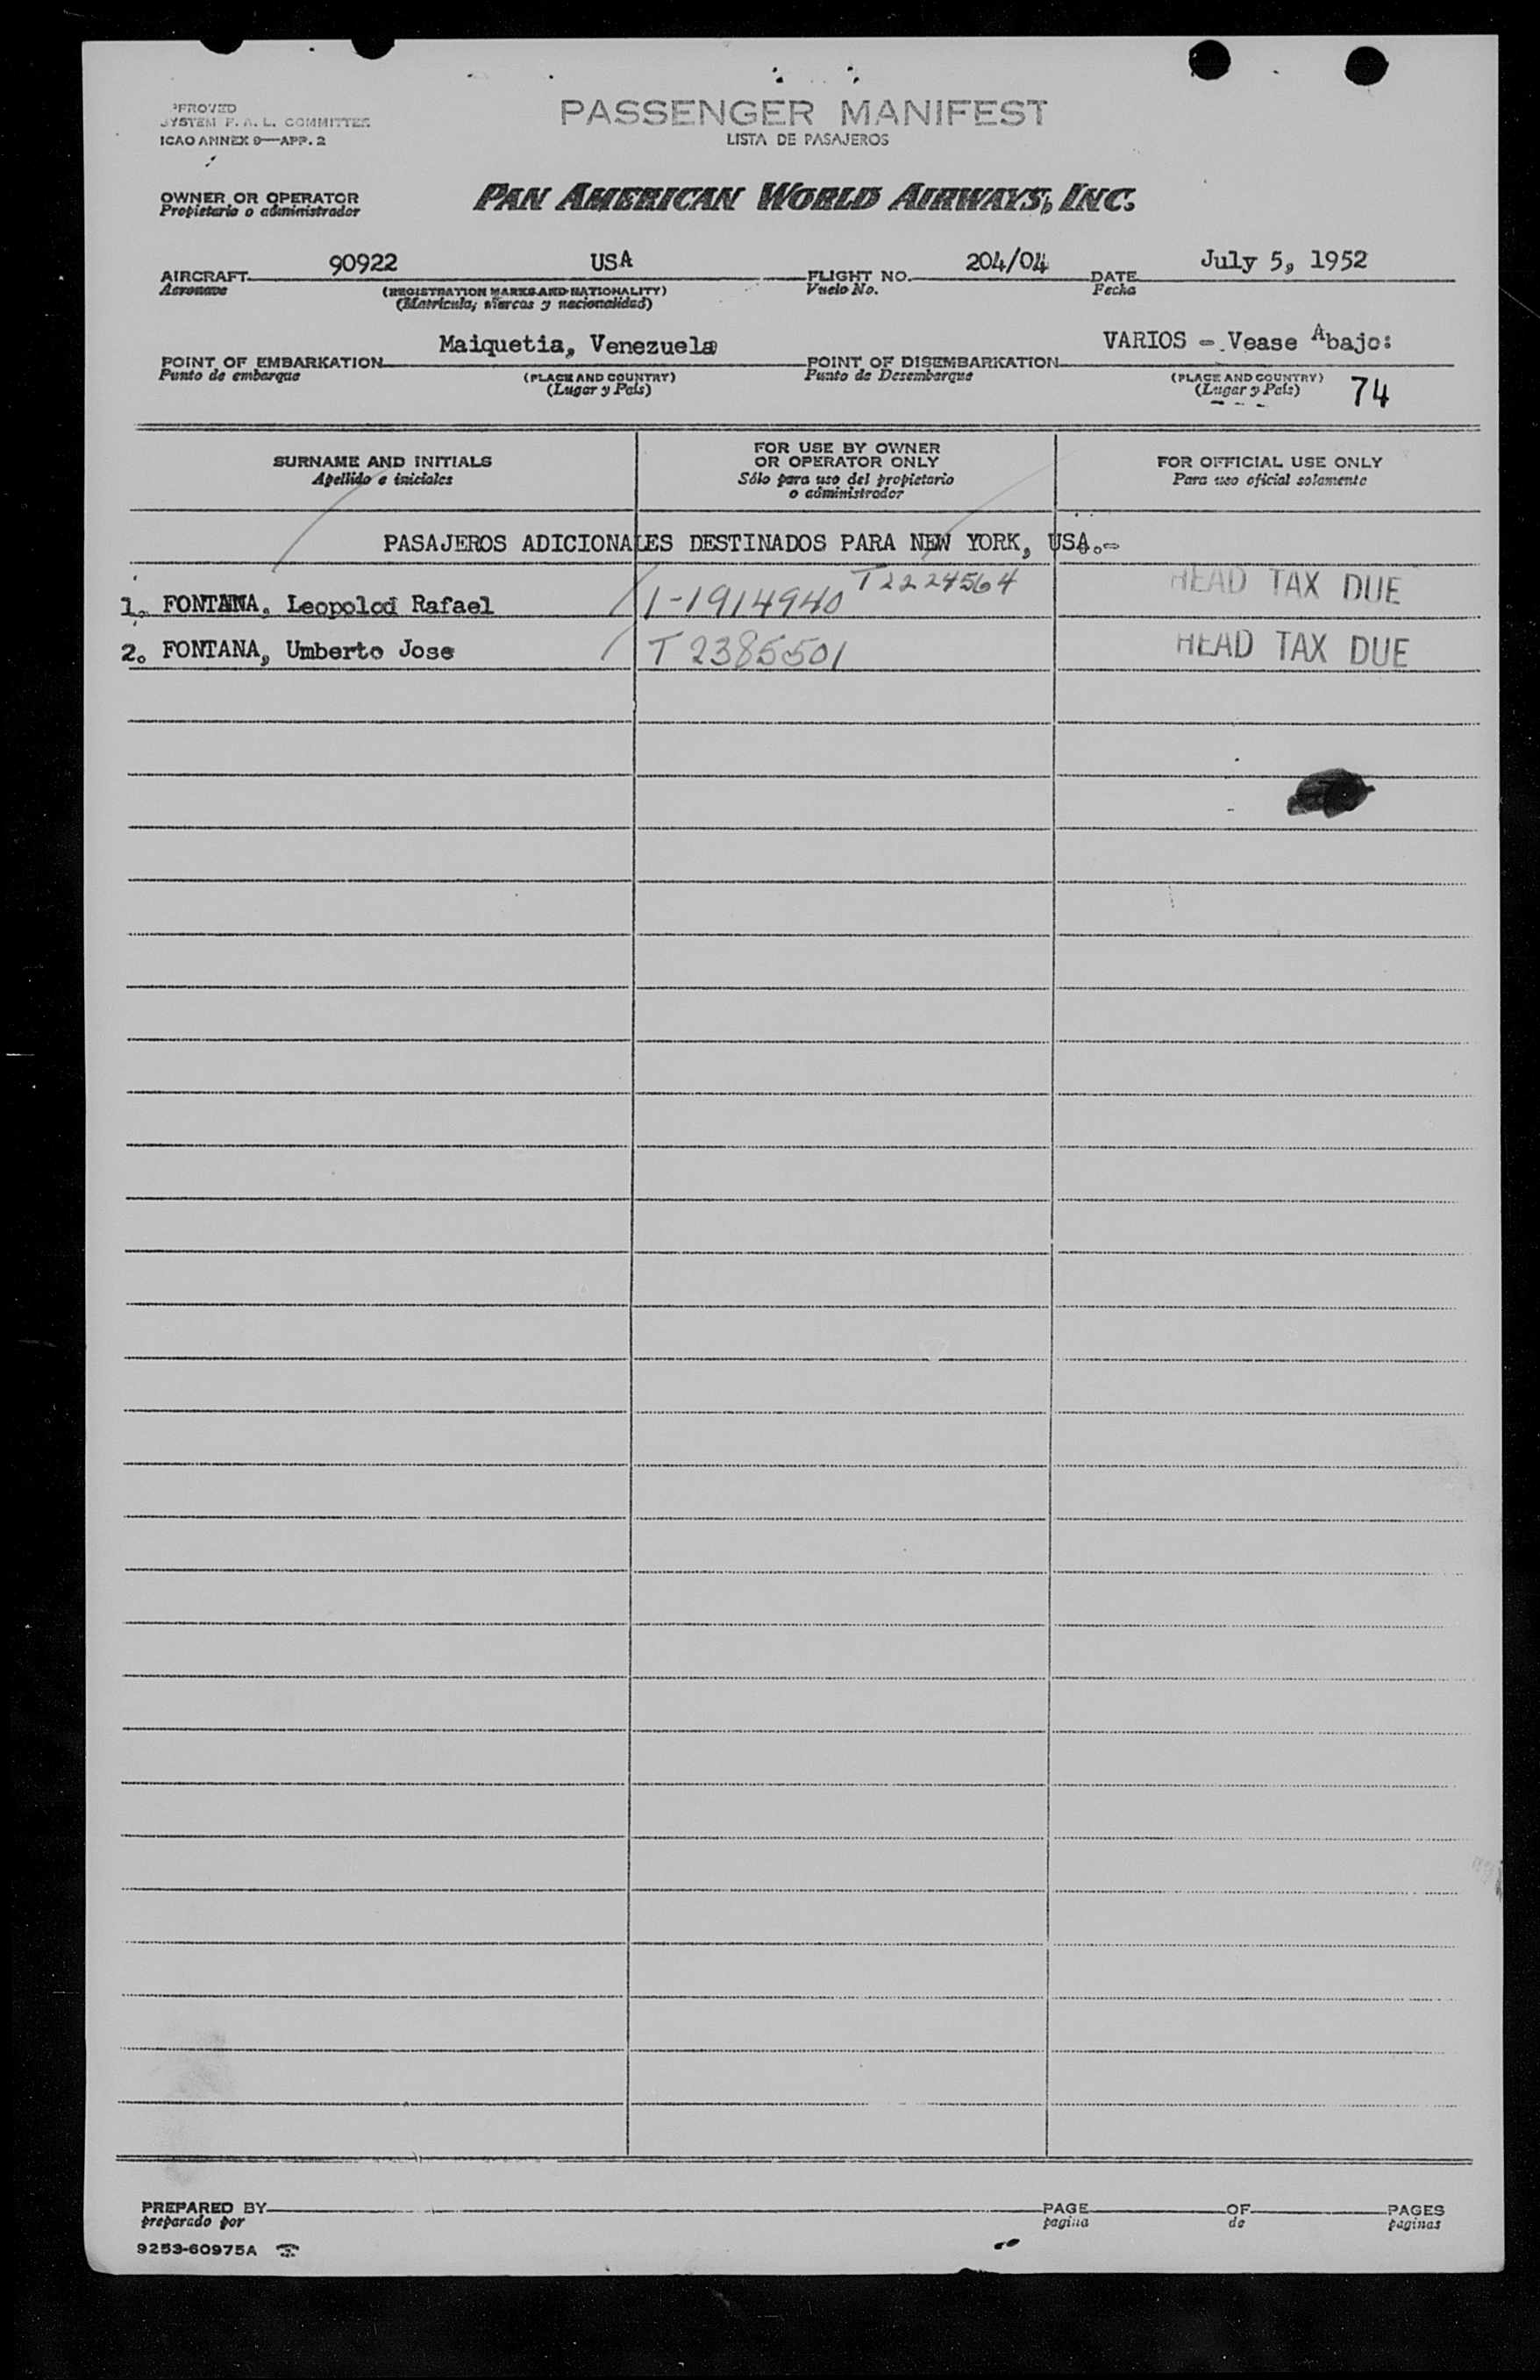 PASSENGER MANIFEST
LISTA DE PASAJEROS
SYSTEM F. A. L. COMMITTEE
ICAO ANNEX 9—APP. 2
OWNER OR OPERATOR
Propietario o administrador
PAN AMERICAN WORLD AIRWAYS, INC.
AIRCRAFT 90922 USA FLIGHT NO. 204/04 DATE July 5, 1952
Aeronave (REGISTRATION MARKS AND NATIONALITY) Vuelo No. Fecha
(Matrícula, marcas y nacionalidad)
POINT OF EMBARKATION Maiquetia, Venezuela POINT OF DISEMBARKATION VARIOS - Vease Abajo:
Punto de embarque (PLACE AND COUNTRY) Punto de Desembarque (PLACE AND COUNTRY)
(Lugar y País) (Lugar y País) 74
SURNAME AND INITIALS FOR USE BY OWNER OR OPERATOR ONLY FOR OFFICIAL USE ONLY
Apellido e iniciales Sólo para uso del propietario o administrador Para uso oficial solamente
PASAJEROS ADICIONALES DESTINADOS PARA NEW YORK, USA.-
1. FONTANA, Leopolod Rafael 1-1914940 T2224564 HEAD TAX DUE
2. FONTANA, Umberto Jose T 2385501 HEAD TAX DUE
PREPARED BY PAGE OF PAGES
preparado por pagina de paginas
9253-60975A